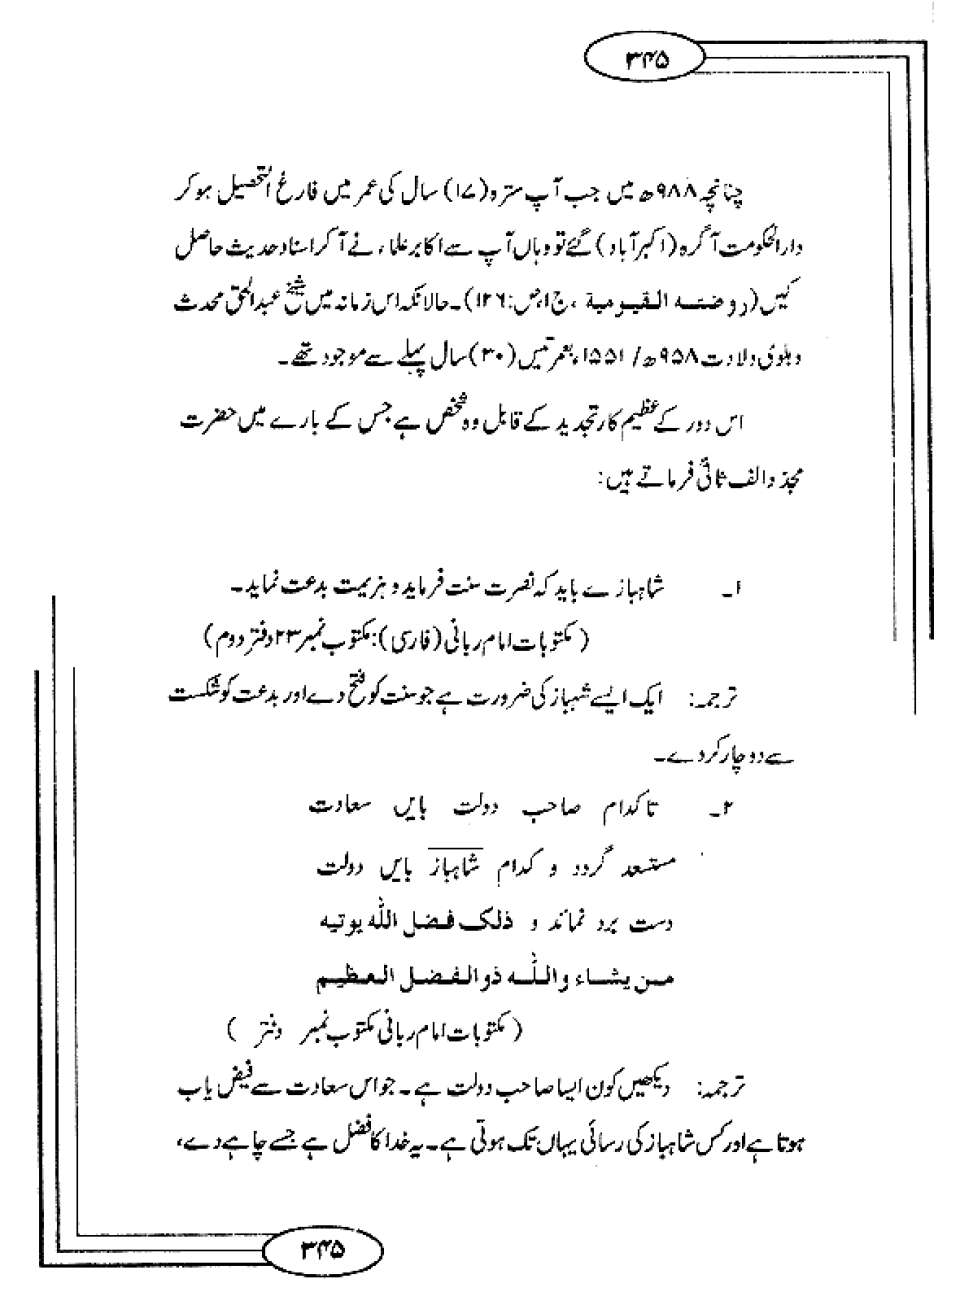 ۳۴۵
چنانچہ ۹۸۸ھ میں جب آپ سترہ (۱۷) سال کی عمر میں فارغ التحصیل ہوکر
دارالحکومت آگرہ (اکبرآباد) گئے تو وہاں آپ سے اکابر علماء نے آکر اسناد حدیث حاصل
کیں (روضتہ القیومیۃ ، ج۱،ص:۱۲۶)۔ حالانکہ اس زمانہ میں شیخ عبدالحق محدث
دہلوی ولادت ۹۵۸ھ/ ۱۵۵۱ء بعمر تیس (۳۰) سال پہلے سے موجود تھے۔
اس دور کے عظیم کار تجدید کے قابل وہ شخص ہے جس کے بارے میں حضرت
مجدد الف ثانی فرماتے ہیں:
۱۔ شاہبازے باید کہ نصرت سنت فرماید و ہزیمت بدعت نماید۔
(مکتوبات امام ربانی (فارسی): مکتوب نمبر ۲۳ دفتر دوم)
ترجمہ: ایک ایسے شہباز کی ضرورت ہے جو سنت کو فتح دے اور بدعت کو شکست
سے دوچار کردے۔
۲۔ تا کدام صاحب دولت بایں سعادت
مستسعد گردد و کدام شاہباز بایں دولت
دست برد نماند و ذلک فضل اللہ یوتیہ
من یشاء واللہ ذوالفضل العظیم
(مکتوبات امام ربانی مکتوب نمبر دفتر )
ترجمہ: دیکھیں کون ایسا صاحب دولت ہے۔ جو اس سعادت سے فیض یاب
ہوتا ہے اور کس شاہباز کی رسائی یہاں تک ہوتی ہے۔ یہ خدا کا فضل ہے جسے چاہے دے،
۳۴۵